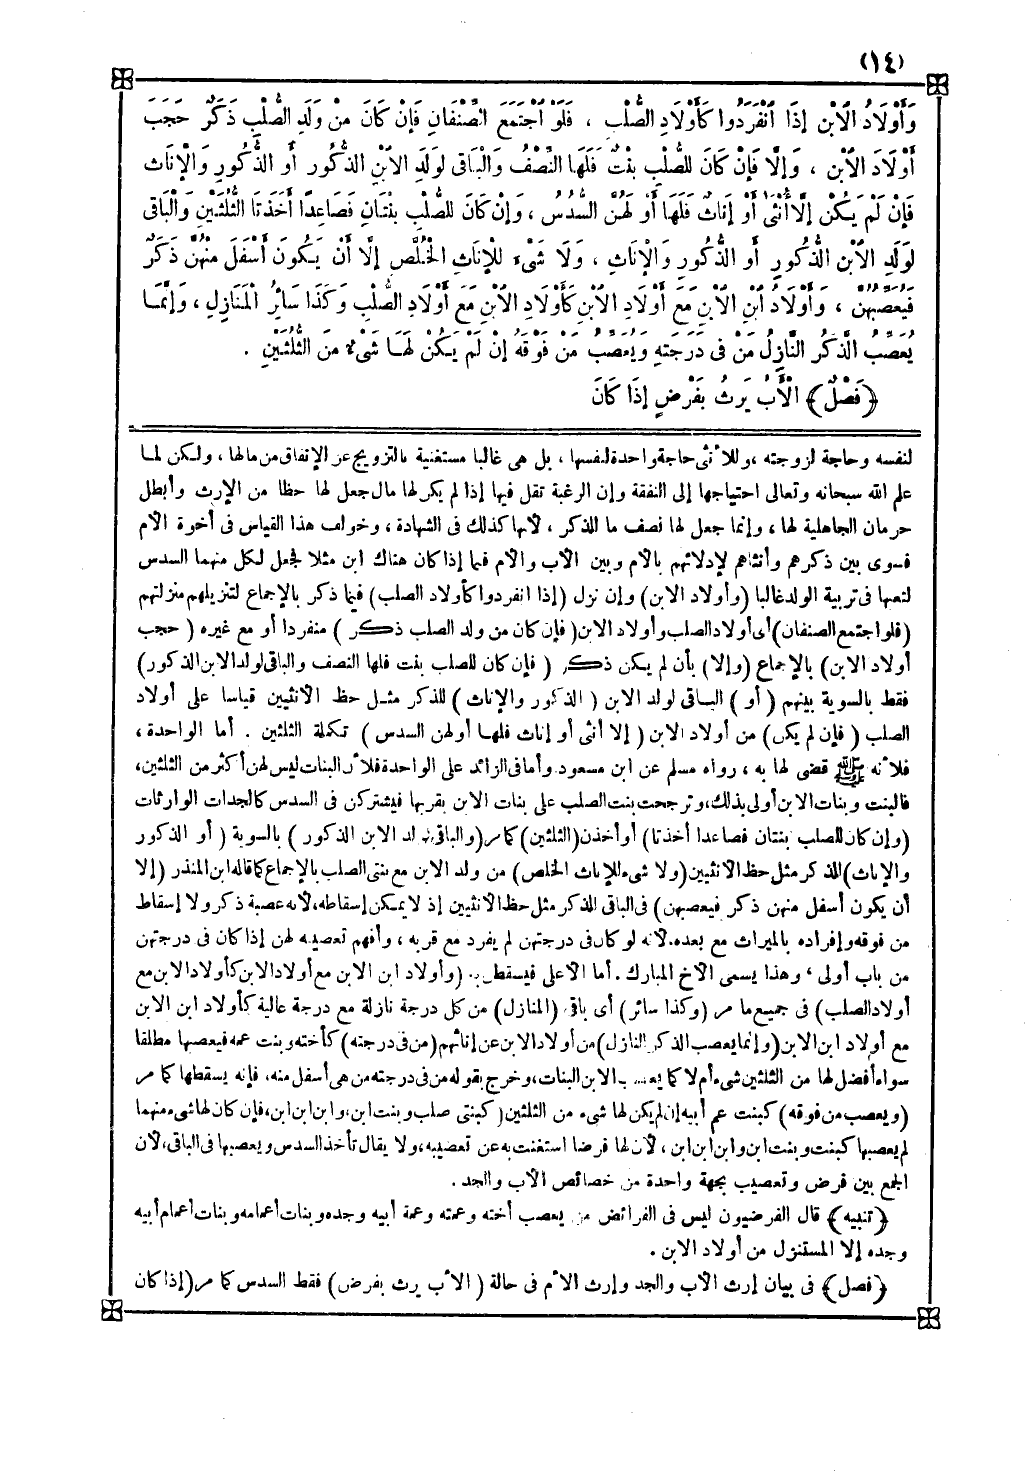 (١٤)
وَأَوْلَادُ الِابْنِ إِذَا انْفَرَدُوا كَأَوْلَادِ الصُّلْبِ ، فَلَوْ اجْتَمَعَ الصِّنْفَانِ فَإِنْ كَانَ مِنْ وَلَدِ الصُّلْبِ ذَكَرٌ حَجَبَ
أَوْلَادَ الِابْنِ ، وَإِلَّا فَإِنْ كَانَ لِلصُّلْبِ بِنْتٌ فَلَهَا النِّصْفُ وَالْبَاقِى لِوَلَدِ الِابْنِ الذُّكُورِ أَوِ الذُّكُورِ وَالْإِنَاثِ
فَإِنْ لَمْ يَكُنْ إِلَّا أُنْثَى أَوْ إِنَاثٌ فَلَهَا أَوْ لَهُنَّ السُّدُسُ ، وَإِنْ كَانَ لِلصُّلْبِ بِنْتَانِ فَصَاعِدًا أَخَذَتَا الثُّلُثَيْنِ وَالْبَاقِى
لِوَلَدِ الِابْنِ الذُّكُورِ أَوِ الذُّكُورِ وَالْإِنَاثِ ، وَلَا شَىْءَ لِلْإِنَاثِ الْخُلَّصِ إِلَّا أَنْ يَكُونَ أَسْفَلَ مِنْهُنَّ ذَكَرٌ
فَيُعَصِّبُهُنَّ ، وَأَوْلَادُ ابْنِ الِابْنِ مَعَ أَوْلَادِ الِابْنِ كَأَوْلَادِ الِابْنِ مَعَ أَوْلَادِ الصُّلْبِ وَكَذَا سَائِرُ الْمَنَازِلِ ، وَإِنَّمَا
يُعَصِّبُ الذَّكَرُ النَّازِلُ مَنْ فِى دَرَجَتِهِ وَيُعَصِّبُ مَنْ فَوْقَهُ إِنْ لَمْ يَكُنْ لَهَا شَىْءٌ مِنَ الثُّلُثَيْنِ .
﴿ فَصْلٌ ﴾ الْأَبُ يَرِثُ بِفَرْضٍ إِذَا كَانَ
لنفسه وحاجة لزوجته ، وللأنثى حاجة واحدة لنفسها ، بل هى غالبا مستغنية بالتزويج عن الإنفاق من مالها ، ولكن لما
علم الله سبحانه وتعالى احتياجها إلى النفقة وإن الرغبة تقل فيها إذا لم يكن لها مال جعل لها حظا من الإرث وأبطل
حرمان الجاهلية لها ، وإنما جعل لها نصف ما للذكر ، لأنها كذلك فى الشهادة ، وخولف هذا القياس فى أخوة الأم
فسوى بين ذكرهم وأنثاهم لإدلائهم بالأم وبين الأب والأم فيما إذا كان هناك ابن مثلا فجعل لكل منهما السدس
لتعبها فى تربية الولد غالبا (وأولاد الابن) وإن نزل (إذا انفردوا كأولاد الصلب) فيما ذكر بالإجماع لتنزيلهم منزلتهم
(فلو اجتمع الصنفان) أى أولاد الصلب وأولاد الابن (فإن كان من ولد الصلب ذكر ) منفردا أو مع غيره ( حجب
أولاد الابن) بالإجماع (وإلا) بأن لم يكن ذكر ( فإن كان للصلب بنت فلها النصف والباقى لولد الابن الذكور)
فقط بالسوية بينهم ( أو ) الباقى لولد الابن ( الذكور والإناث ) للذكر مثل حظ الأنثيين قياسا على أولاد
الصلب ( فإن لم يكن) من أولاد الابن ( إلا أنثى أو إناث فلها أو لهن السدس ) تكملة الثلثين . أما الواحدة ،
فلأنه ﷺ قضى لها به ، رواه مسلم عن ابن مسعود وأما فى الزائد على الواحدة فلأن البنات ليس لهن أكثر من الثلثين،
فالبنت وبنات الابن أولى بذلك، وترجحت بنت الصلب على بنات الابن بقربها فيشتركن فى السدس كالجدات الوارثات
(وإن كان للصلب بنتان فصاعدا أخذتا) أو أخذن (الثلثين) كما مر (والباقى لولد الابن الذكور ) بالسوية ( أو الذكور
والإناث) للذكر مثل حظ الأنثيين (ولا شىء للإناث الخلص) من ولد الابن مع بنتى الصلب بالإجماع كما قاله ابن المنذر (إلا
أن يكون أسفل منهن ذكر فيعصبهن) فى الباقى للذكر مثل حظ الأنثيين إذ لا يمكن إسقاطه، لأنه عصبة ذكر ولا إسقاط
من فوقه وإفراده بالميراث مع بعده. لأنه لو كان فى درجتهن لم يفرد مع قربه ، وأفهم تعصيبه لهن إذا كان فى درجتهن
من باب أولى ، وهذا يسمى الأخ المبارك . أما الأعلى فيسقطن به (وأولاد ابن الابن مع أولاد الابن كأولاد الابن مع
أولاد الصلب) فى جميع ما مر (وكذا سائر) أى باقى (المنازل) من كل درجة نازلة مع درجة عالية كأولاد ابن الابن
مع أولاد ابن الابن (وإنما يعصب الذكر النازل) من أولاد الابن عن إناثهم (من فى درجته) كأخته وبنت عمه فيعصبها مطلقا
سواء أفضل لها من الثلثين شىء أم لا كما يعصب الابن البنات، وخرج بقوله من فى درجته من هى أسفل منه، فإنه يسقطها كما مر
(ويعصب من فوقه) كبنت عم أبيه إن لم يكن لها شىء من الثلثين (كبنتى صلب وبنت ابن، وابن ابن ابن، فإن كان لها شىء منهما
لم يعصبها كبنت وبنت ابن وابن ابن ابن ، لأن لها فرضا استغنت به عن تعصيبه، ولا يقال تأخذ السدس ويعصبها فى الباقى، لأن
الجمع بين فرض وتعصيب بجهة واحدة من خصائص الأب والجد .
﴿ تنبيه ﴾ قال الفرضيون ليس فى الفرائض من يعصب أخته وعمته وعمة أبيه وجده وبنات أعمامه وبنات أعمام أبيه
وجده إلا المستنزل من أولاد الابن .
﴿ فصل ﴾ فى بيان إرث الأب والجد وإرث الأم فى حالة ( الأب يرث بفرض) فقط السدس كما مر (إذا كان